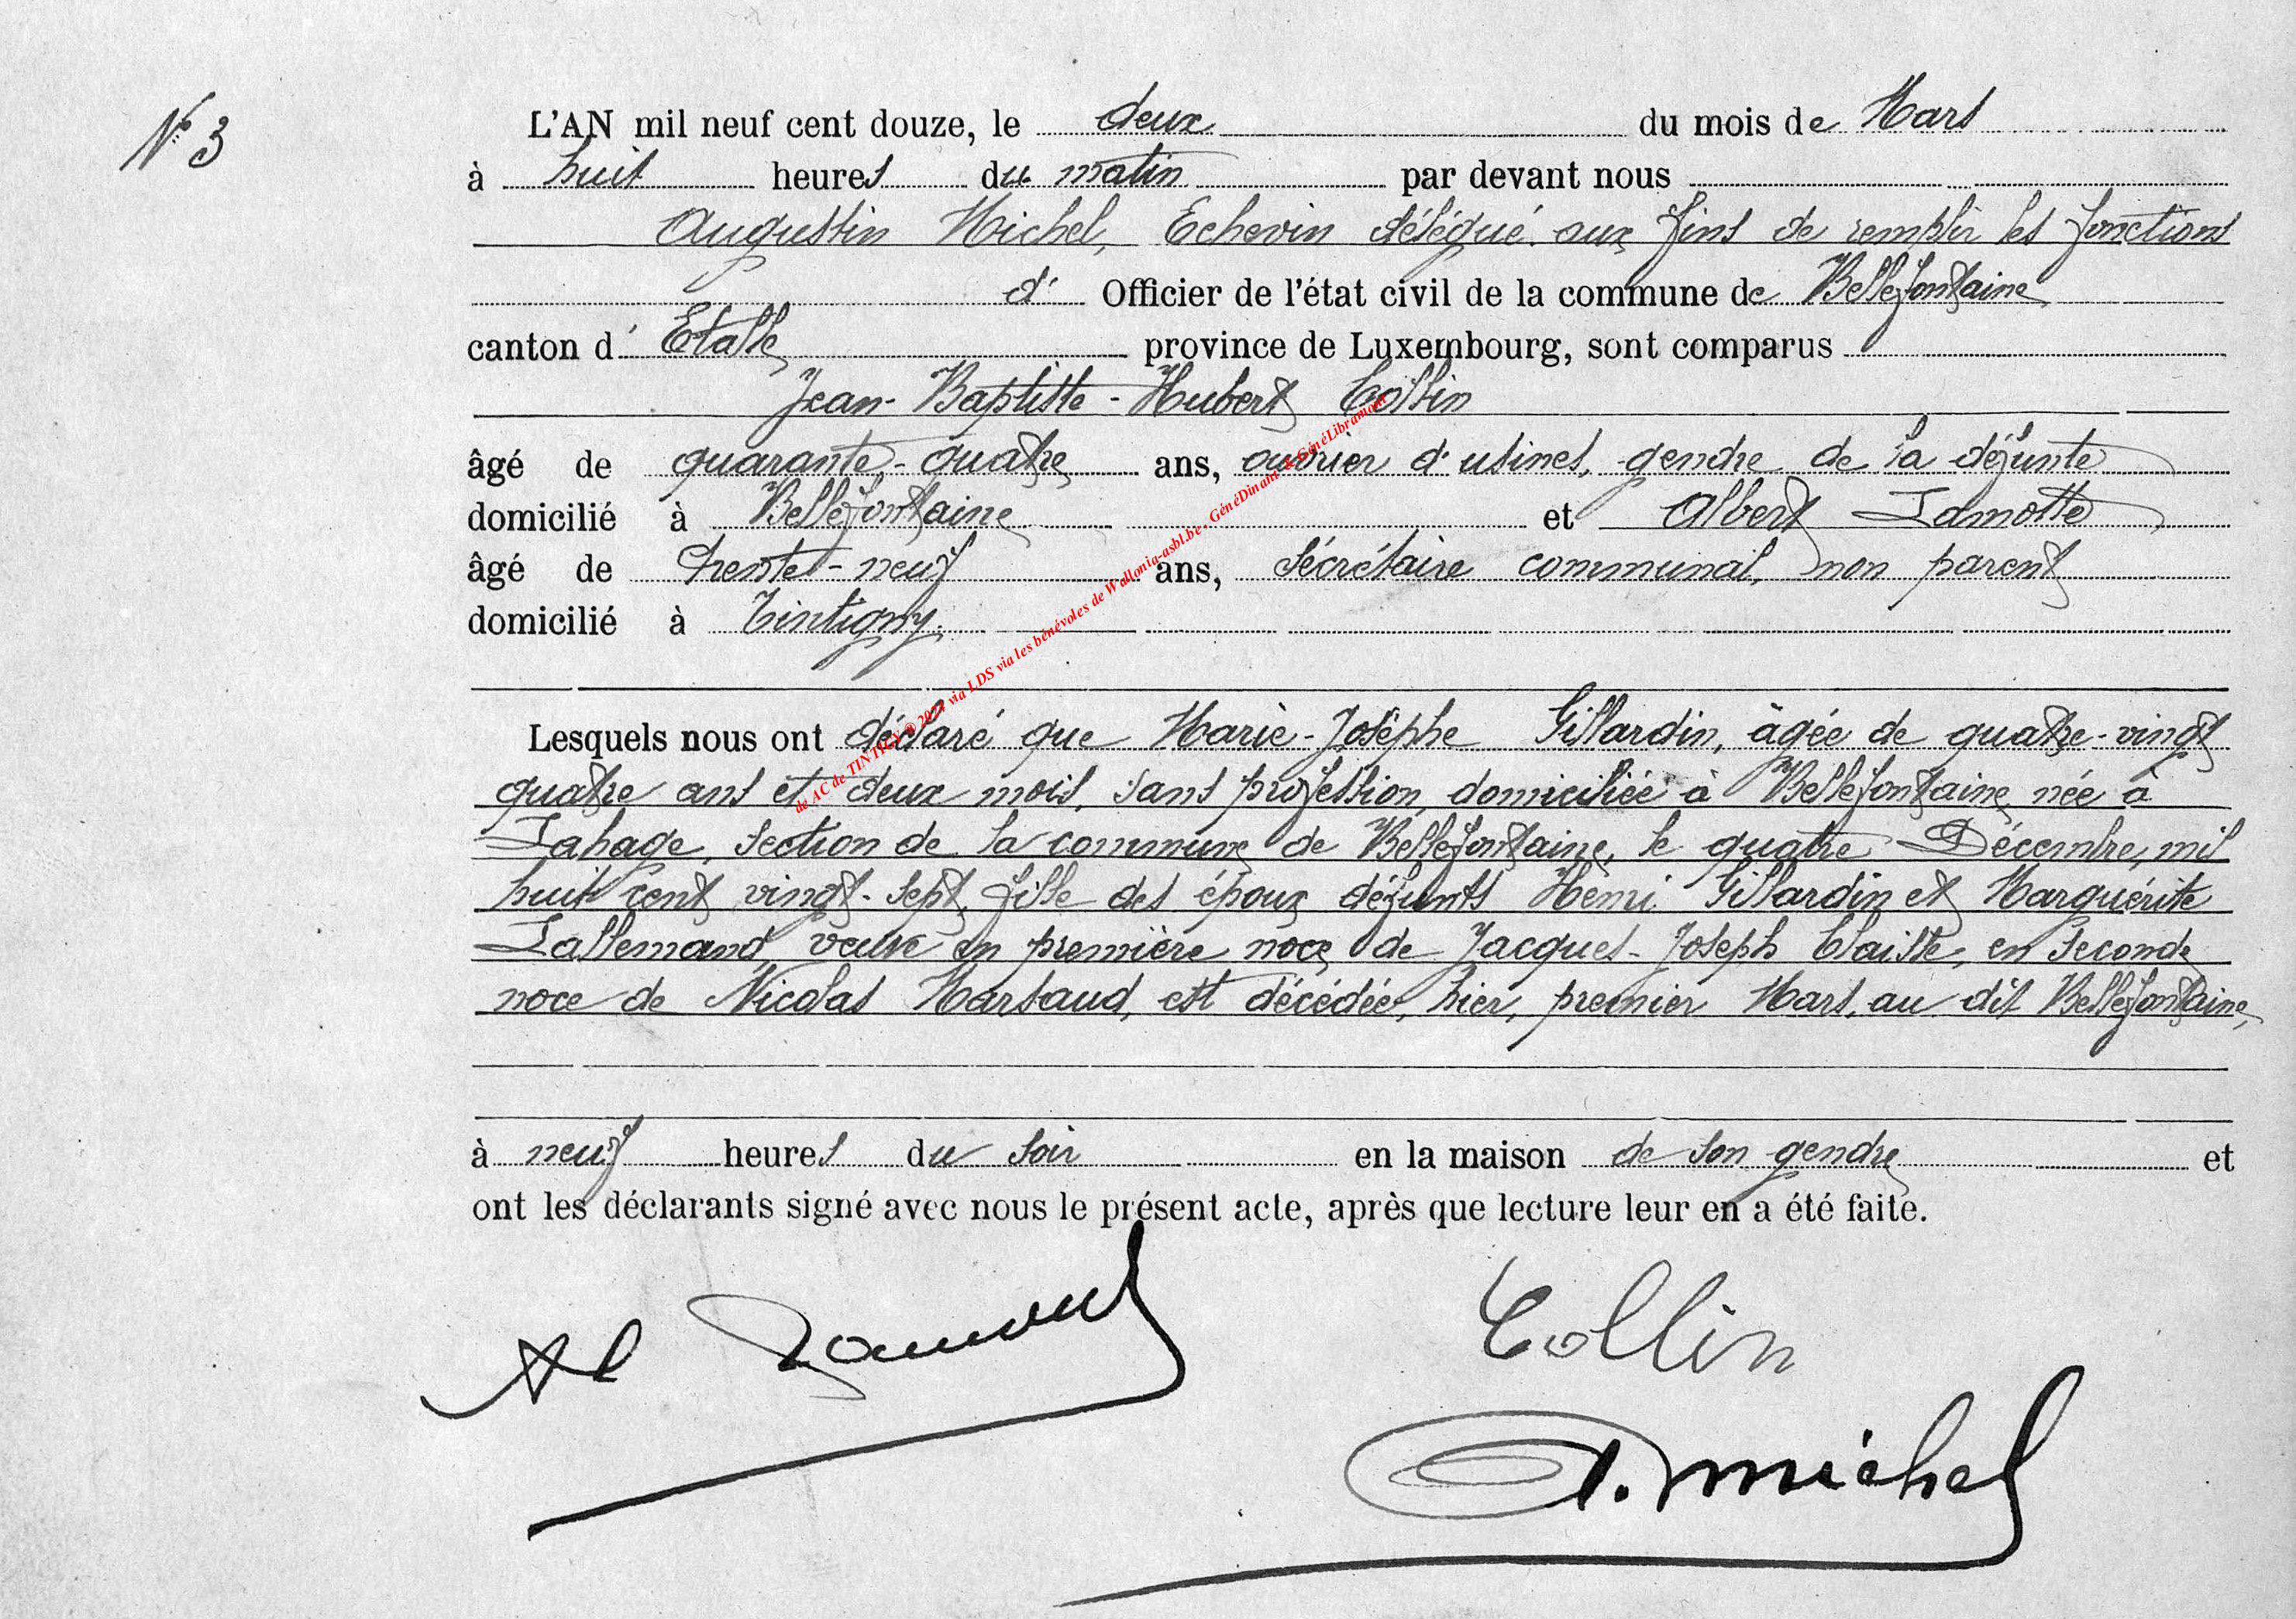 N° 3
L'AN mil neuf cent douze, le deux du mois de Mars
à huit heures du matin par devant nous
Augustin Michel, Echevin délégué aux fins de remplir les fonctions
d' Officier de l'état civil de la commune de Bellefontaine
canton d' Etalle province de Luxembourg, sont comparus
Jean-Baptiste-Hubert Collin
âgé de quarante-quatre ans, ouvrier d'usines, gendre de la défunte
domicilié à Bellefontaine et Albert Lamotte
âgé de trente-neuf ans, sécrétaire communal, non parent
domicilié à Tintigny.
Lesquels nous ont déclaré que Marie-Josèphe Gillardin, âgée de quatre-vingt
quatre ans et deux mois, sans profession, domiciliée à Bellefontaine, née à
Lahage, section de la commune de Bellefontaine, le quatre Décembre, mil
huit cent vingt-sept, fille des époux défunts Henri Gillardin et Marguérite
Lallemand, veuve en première noce de Jacques-Joseph Claisse, en seconde
noce de Nicolas Marsaud, est décédée, hier, premier Mars, au dit Bellefontaine,
à neuf heures du soir en la maison de son gendre et
ont les déclarants signé avec nous le présent acte, après que lecture leur en a été faite.
Al Collin
A. Michel
de AC de TINTIGY @ 2024 via LDS via les bénévoles de Wallonia-asbl.be - GénéDinant & GénéLibramont